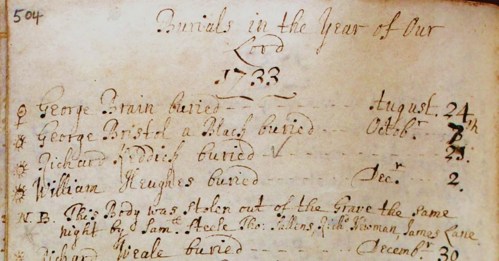 504
Burials in the Year of Our
Lord
1733
George Brain buried August 24
George Bristol a Black buried Octobr. 7th
Richard Kiddich buried 21.
William Heughes buried Decr. 2.
N.B. This Body was Stolen out of the Grave the same
night by Samll. Steele Tho: Richd. James Lane
Richard Weale buried Decembr. 30